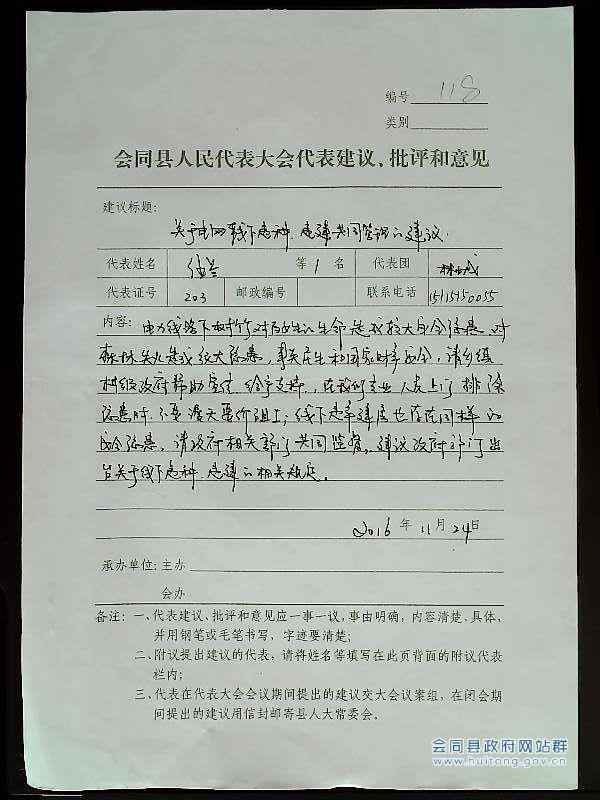 编号 118
类别
会同县人民代表大会代表建议、批评和意见
建议标题：
关于电网线下违种、违建共同管理的建议
代表姓名 等1名 代表团 林城
代表证号 203 邮政编号 联系电话 15115150055
内容：电力线路下树竹对百姓的生命造成较大安全隐患，对
森林失火造成很大隐患，事关民生和国家财产安全，请乡镇
村级政府帮助宣传，给予支持，在我们专业人员上门排除
隐患时，不要漫天要价阻工；线下违章建房也存在同样的
安全隐患，请政府相关部门共同监督，建议政府部门出
台关于线下违种、违建的相关规定。
2016年11月24日
承办单位：主办
会办
备注：一、代表建议、批评和意见应一事一议，事由明确，内容清楚、具体，
并用钢笔或毛笔书写，字迹要清楚；
二、附议提出建议的代表，请将姓名等填写在此页背面的附议代表
栏内；
三、代表在代表大会会议期间提出的建议交大会议案组，在闭会期
间提出的建议用信封邮寄县人大常委会。
会同县政府网站群
www.huitong.gov.cn